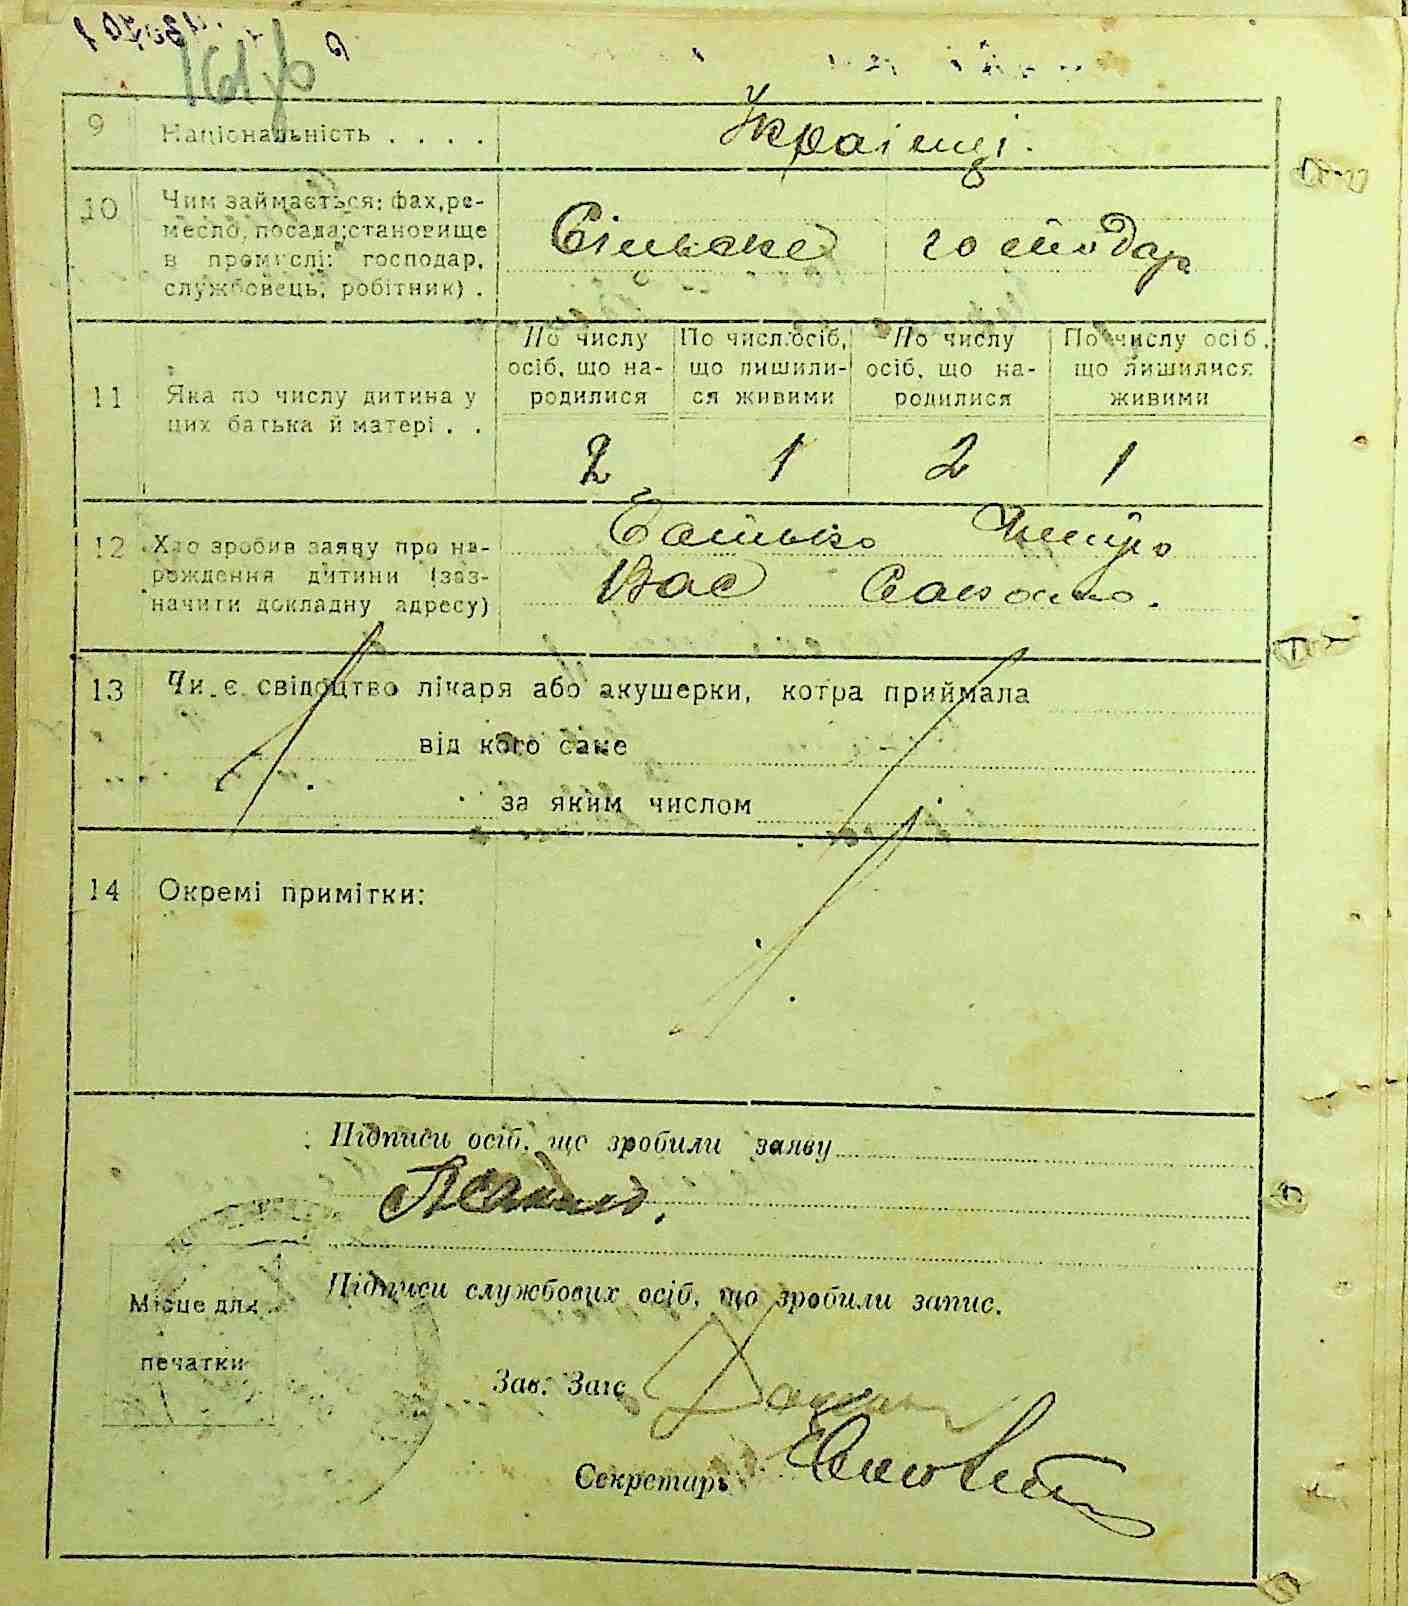 9 Національність . . . . Українці.
10 Чим займається: фах, ре-
месло, посада; становище
в промислі: господар,
службовець, робітник) .
Сільське господар
11 Яка по числу дитина у
цих батька й матері . .
По числу
осіб, що на-
родилися
По числ. осіб,
що лишили-
ся живими
По числу
осіб, що на-
родилися
По числу осіб,
що лишилися
живими
2 1 2 1
12 Хто зробив заяву про на-
рождення дитини (заз-
начити докладну адресу)
Батько
13 Чи є свідоцтво лікаря або акушерки, котра приймала
від кого саме
за яким числом
14 Окремі примітки:
Підписи осіб, що зробили заяву
Підписи службових осіб, що зробили запис.
Місце для
печатки
Зав. Загс
Секретарь